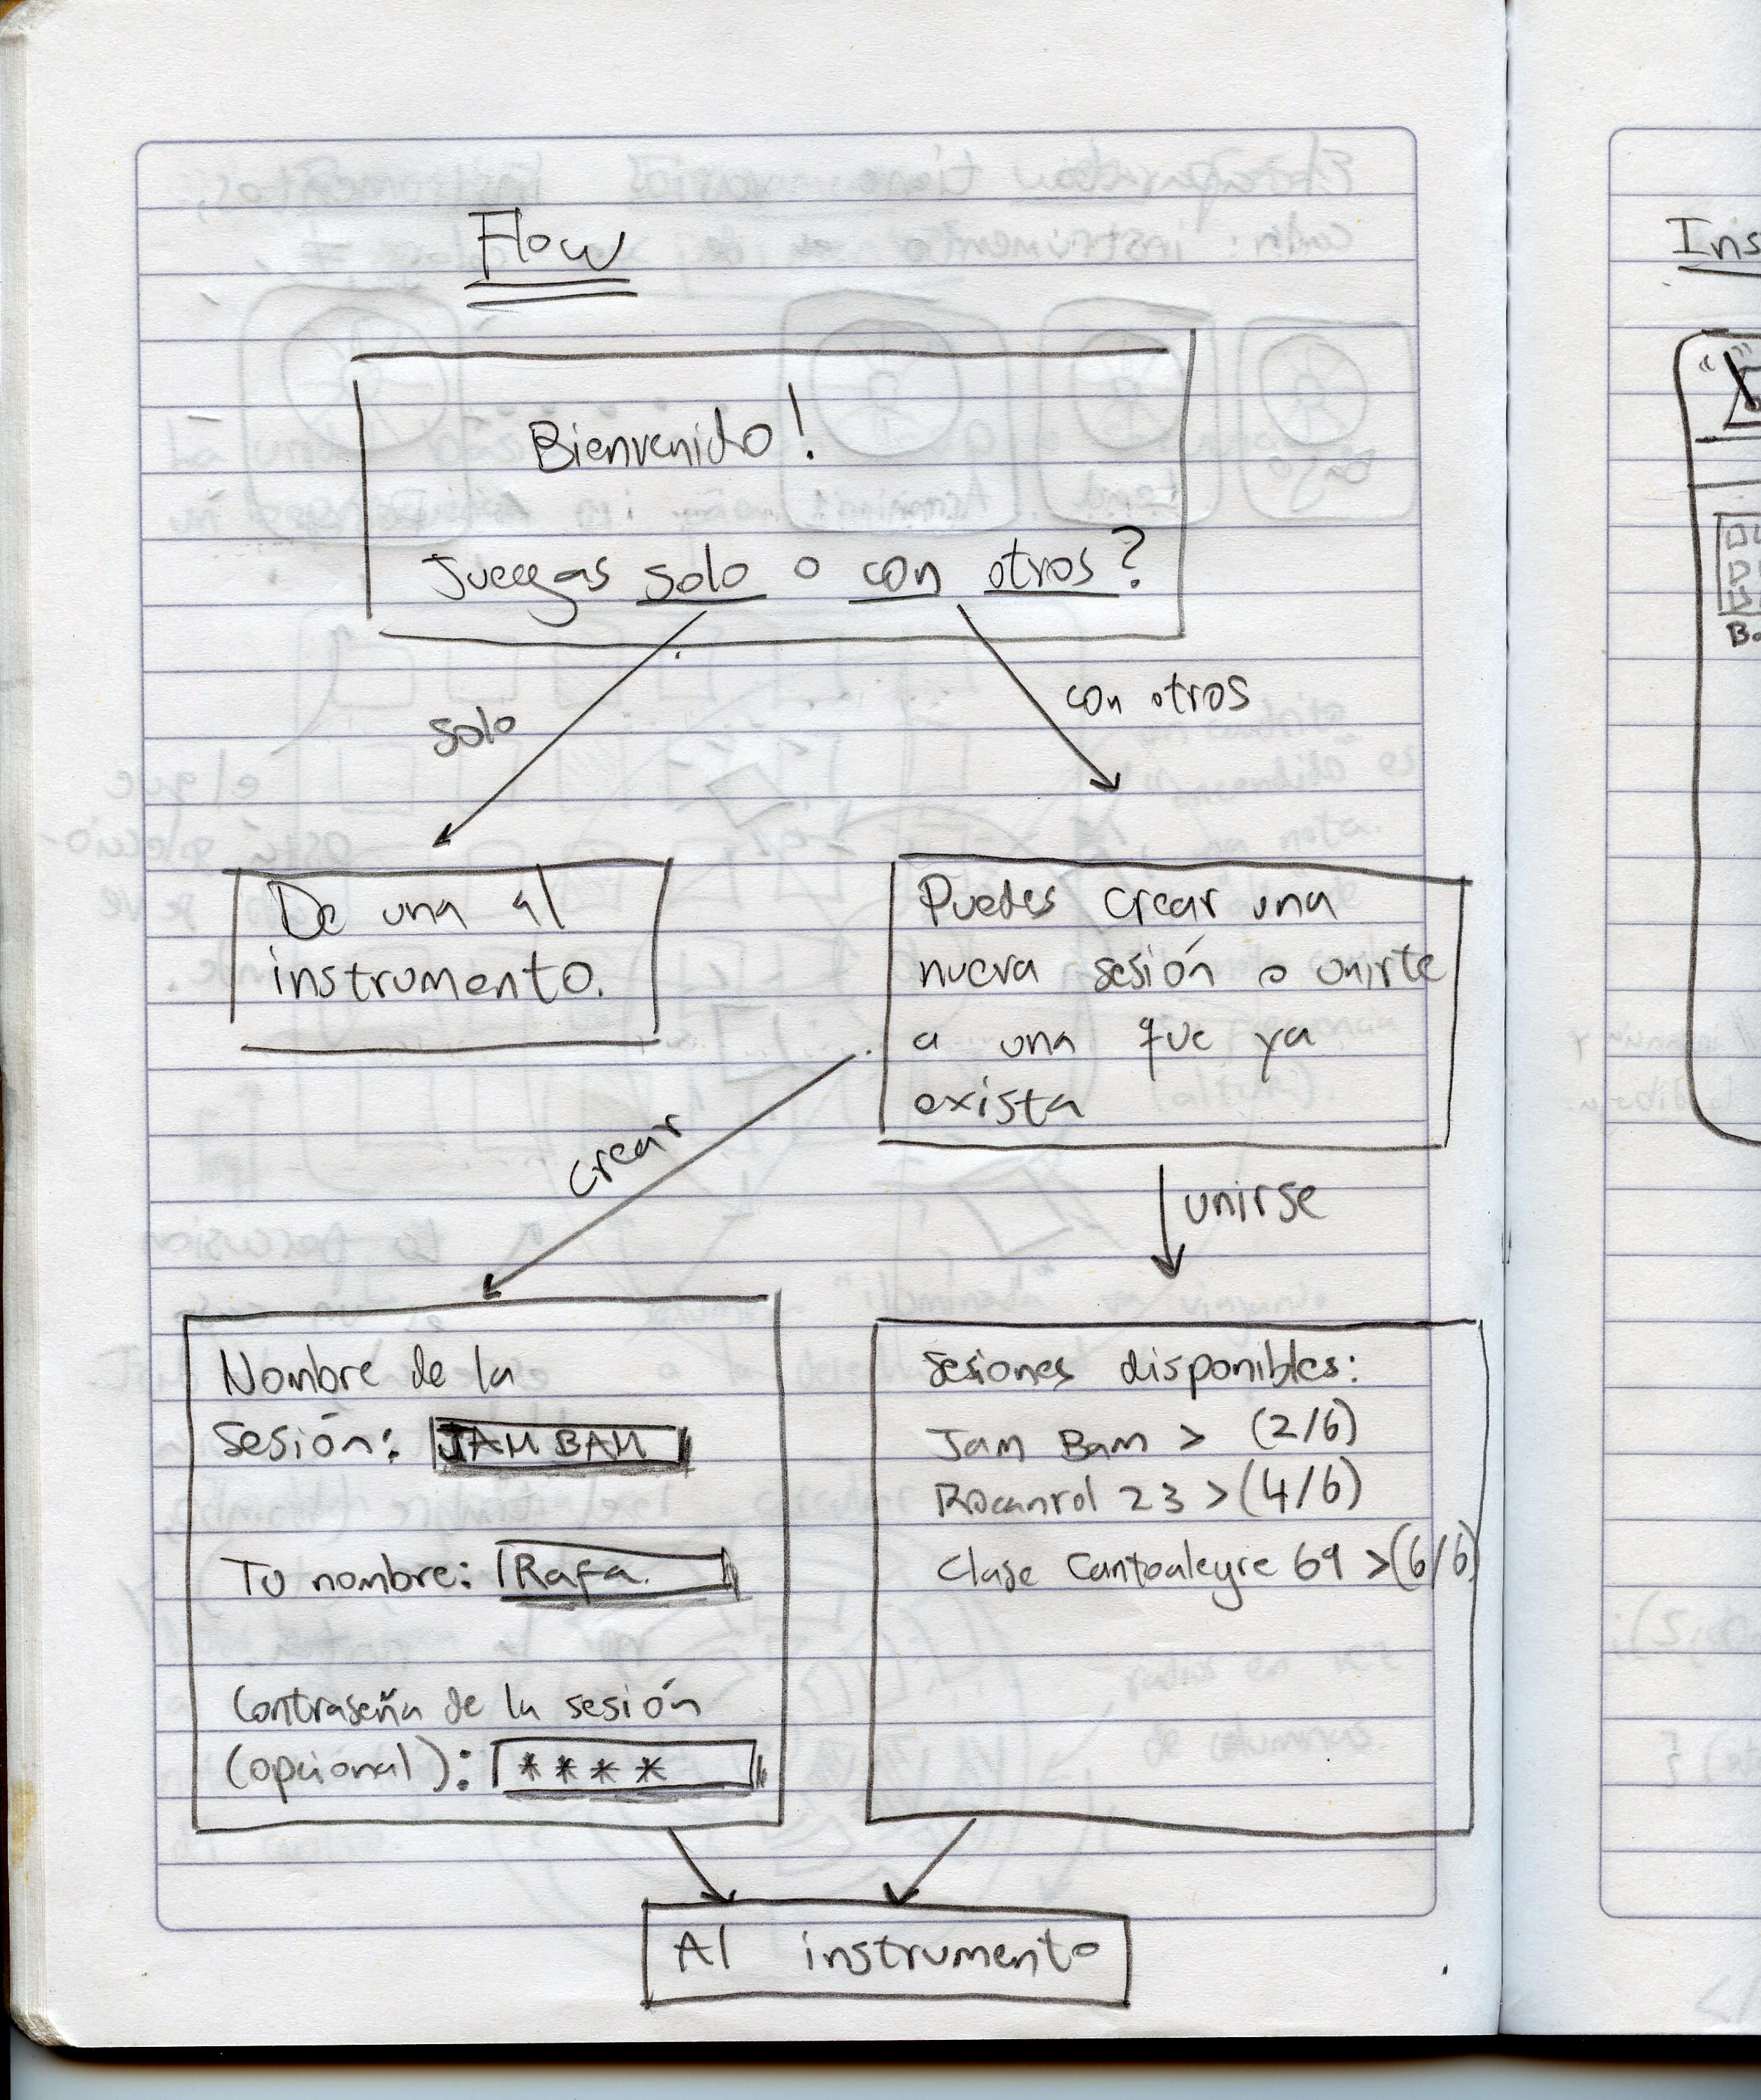 Flow
Bienvenido!
Juegas solo o con otros?
solo
con otros
De una al
instrumento.
Puedes crear una
nueva sesión o unirte
a una que ya
exista
crear
unirse
Nombre de la
sesión: JAM BAM
Tu nombre: Rafa.
Contraseña de la sesión
(opcional): ****
Sesiones disponibles:
Jam Bam > (2/6)
Rocanrol 23 > (4/6)
Clase Cantoalegre 69 > (6/6)
Al instrumento
Ins